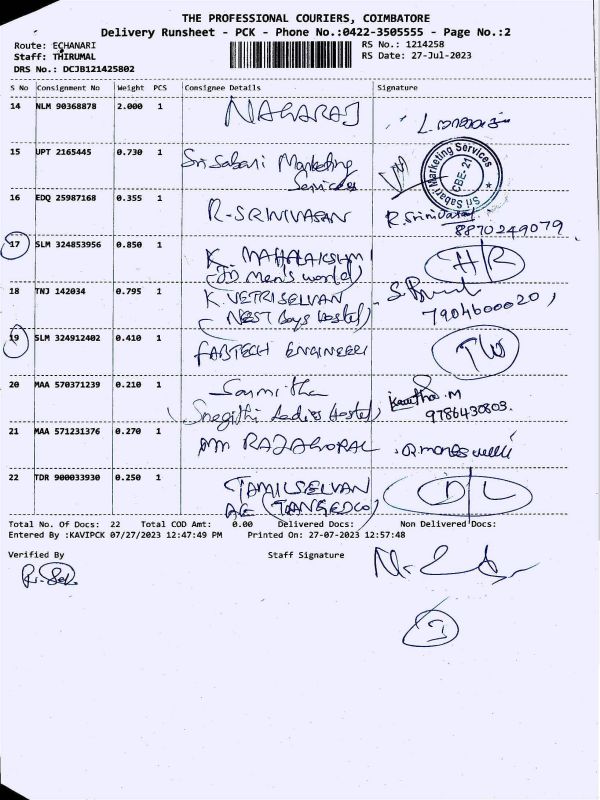 THE PROFESSIONAL COURIERS, COIMBATORE
Delivery Runsheet - PCK - Phone No.:0422-3505555 - Page No.:2
Route: ECHANARI
RS No.: 1214258
Staff: THIRUMAL
RS Date: 27-Jul-2023
DRS No.: DCJB121425802
S No Consignment No Weight PCS Consignee Details Signature
14 NLM 90368878 2.000 1 NAGARAJ
15 UPT 2165445 0.730 1 Sri Sabari Marketing
Services
Sri Sabari Marketing Services
CBE-21
16 EDQ 25987168 0.355 1 R-SRINIVASAN R.Srinivasan
8870249079
17 SLM 324853956 0.850 1 K MAHALAKSHMI HR
(JD Men's world)
18 TNJ 142034 0.795 1 K VETRISELVAN
(NEST Boys Hostel) 7904600020
19 SLM 324912402 0.410 1 FABTECH ENGINEERI
20 MAA 570371239 0.210 1
Snegithi Ladies Hostel 9786430803.
21 MAA 571231376 0.270 1 RAJAGOPAL
22 TDR 900033930 0.250 1 TAMILSELVAN DL
AE (TANGEDCO)
Total No. Of Docs: 22 Total COD Amt: 0.00 Delivered Docs: Non Delivered Docs:
Entered By :KAVIPCK 07/27/2023 12:47:49 PM Printed On: 27-07-2023 12:57:48
Verified By Staff Signature